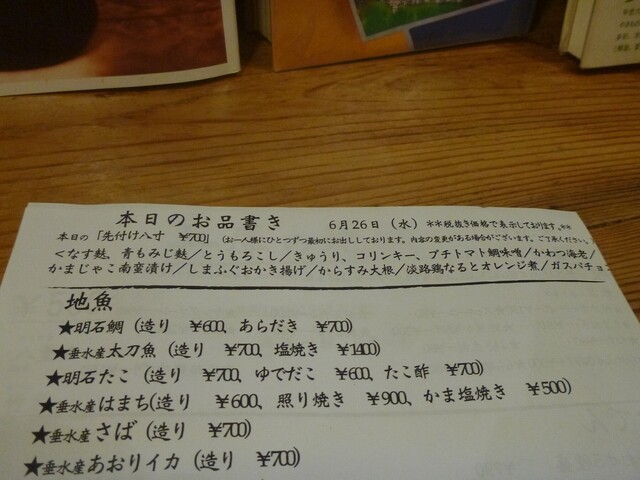 本日のお品書き 6月26日（水） ＊＊税抜き価格で表示しております。＊＊
本日の「先付け八寸 ￥700」（お一人様にひとつずつ最初にお出ししております。内容の変更がある場合がございます。ご了承ください。
＜なす麩、青もみじ麩／とうもろこし／きゅうり、コリンキー、プチトマト鯛味噌／かわつ海老／
かまじゃこ南蛮漬け／しまふぐおかき揚げ／からすみ大根／淡路鶏なるとオレンジ煮／ガスパチョ
地魚
★明石鯛（造り ￥600、あらだき ￥700）
★垂水産太刀魚（造り ￥700、塩焼き ￥1400）
★明石たこ（造り ￥700、ゆでだこ ￥600、たこ酢 ￥700）
★垂水産はまち（造り ￥600、照り焼き ￥900、かま塩焼き ￥500）
★垂水産さば（造り ￥700）
★垂水産あおりイカ（造り ￥700）